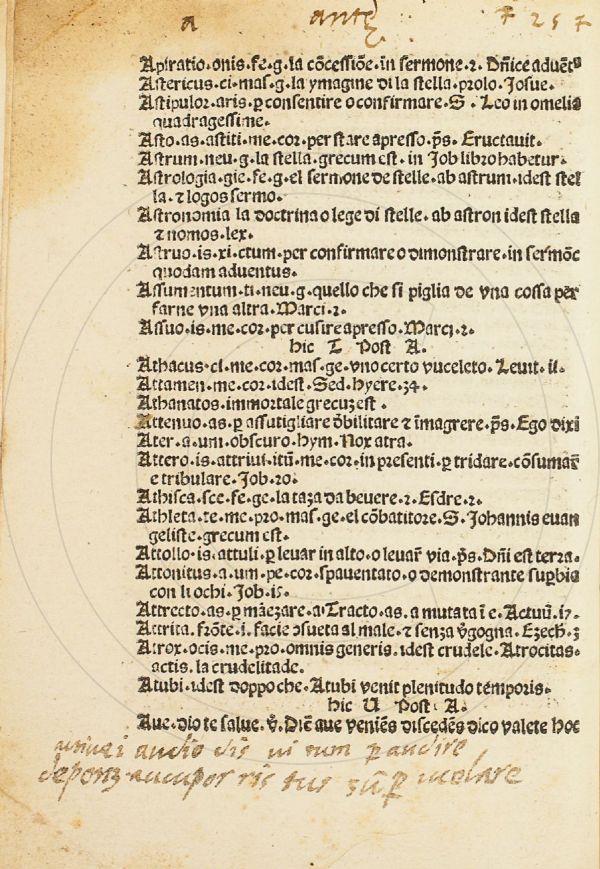 a ante 25
Apiratio.onis.fe.g.la cõcessiõe.in sermone.2.Dñice aduẽt⁹
Astericus.ci.mas.g.la ymagine di la stella.prolo.Josue.
Astipulor.aris.ꝑ consentire o confirmare.S. Leo in omelia
quadragessime.
Asto.as.astiti.me.cor.per stare apresso.p̄s. Eructauit.
Astrum.neu.g.la stella.grecum est. in Job libro habetur.
Astrologia.gie.fe.g.el sermone de stelle.ab astrum.idest stel
la.⁊ logos sermo.
Astronomia la doctrina o lege di stelle. ab astron idest stella
⁊ nomos.lex.
Astruo.is.xi.ctum.per confirmare o dimonstrare.in sermõe
quodam aduentus.
Assumentum.ti.neu.g.quello che si piglia de vna cossa per
farne vna altra.Marci.2.
Assuo.is.me.cor.per cusire apresso.Marci.2.
hic T Post A.
Athacus.ci.me.cor.mas.ge.vno certo vuceleto.Leuit.ii.
Attamen.me.cor.idest.Sed.hyere.34.
Athanatos.immortale grecuꝫ est.
Attenuo.as.ꝑ assutigliare d̄bilitare ⁊ ĩmagrere.p̄s.Ego dixi
Ater.a.um.obscuro.hym.Nox atra.
Attero.is.attriui.itũ.me.cor.in presenti.ꝑ tridare.cõsumar̄
e tribulare.Job.20.
Athisca.sce.fe.ge.la taza da beuere.2.Esdre.2.
Athleta.te.me.pro.mas.ge.el cõbatitore.S.Johannis euan
geliste.grecum est.
Attollo.is.attuli.ꝑ leuar in alto.o leuar̄ via.p̄s.Dñi est terra.
Attonitus.a.um.pe.cor.spauentato.o demonstrante suꝑbia
con li ochi.Job.15.
Attrecto.as.ꝑ mãezare.a.Tracto.as.a mutata ĩ e.Actuũ.17.
Attrita.frõte.i.facie ↄsueta al male.⁊ senza v̄gogna.Ezech.3
Atrox.ocis.me.pro.omnis generis.idest crudele.Atrocitas.
actis.la crudelitade.
Atubi.idest doppo che.Atubi venit plenitudo temporis.
hic U Post A.
Aue.dio te salue.v̄.Dic̄ aue veniẽs discedẽs dico valete hoc
audio dis ui tum ꝑ audire
ris tus sũ ꝑ ucelare